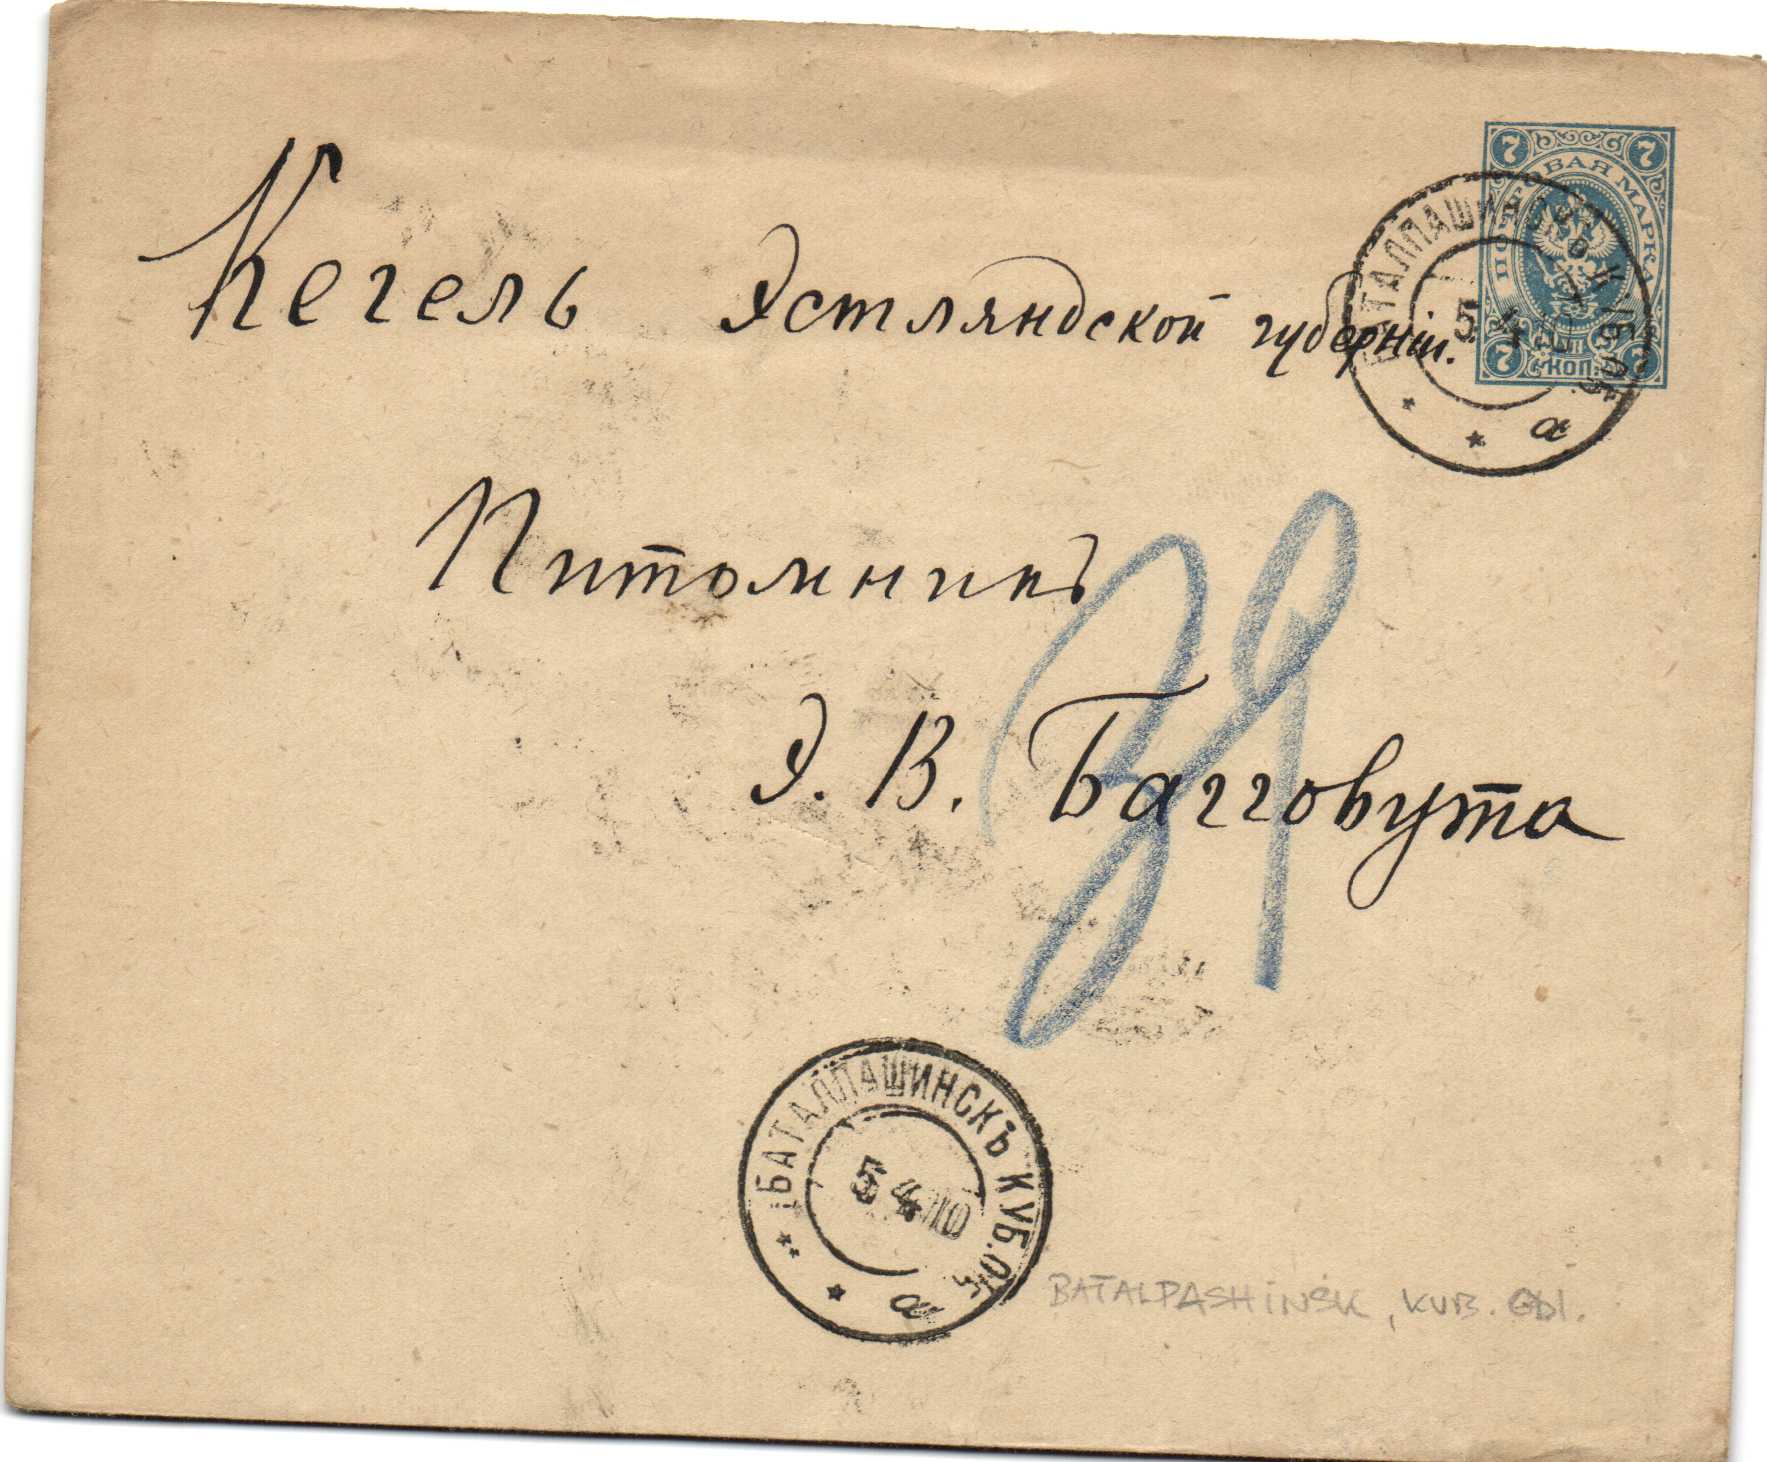 Кегель Эстляндской губерніи.
Питомникъ
Э. В. Багговута
7 7
ПОЧТОВАЯ МАРКА
7 КОП. 7
5 4 10
а
БАТАЛПАШИНСКЪ КУБ. ОБ.
5 4 10
а
BATALPASHINSK, KUB. Obl.